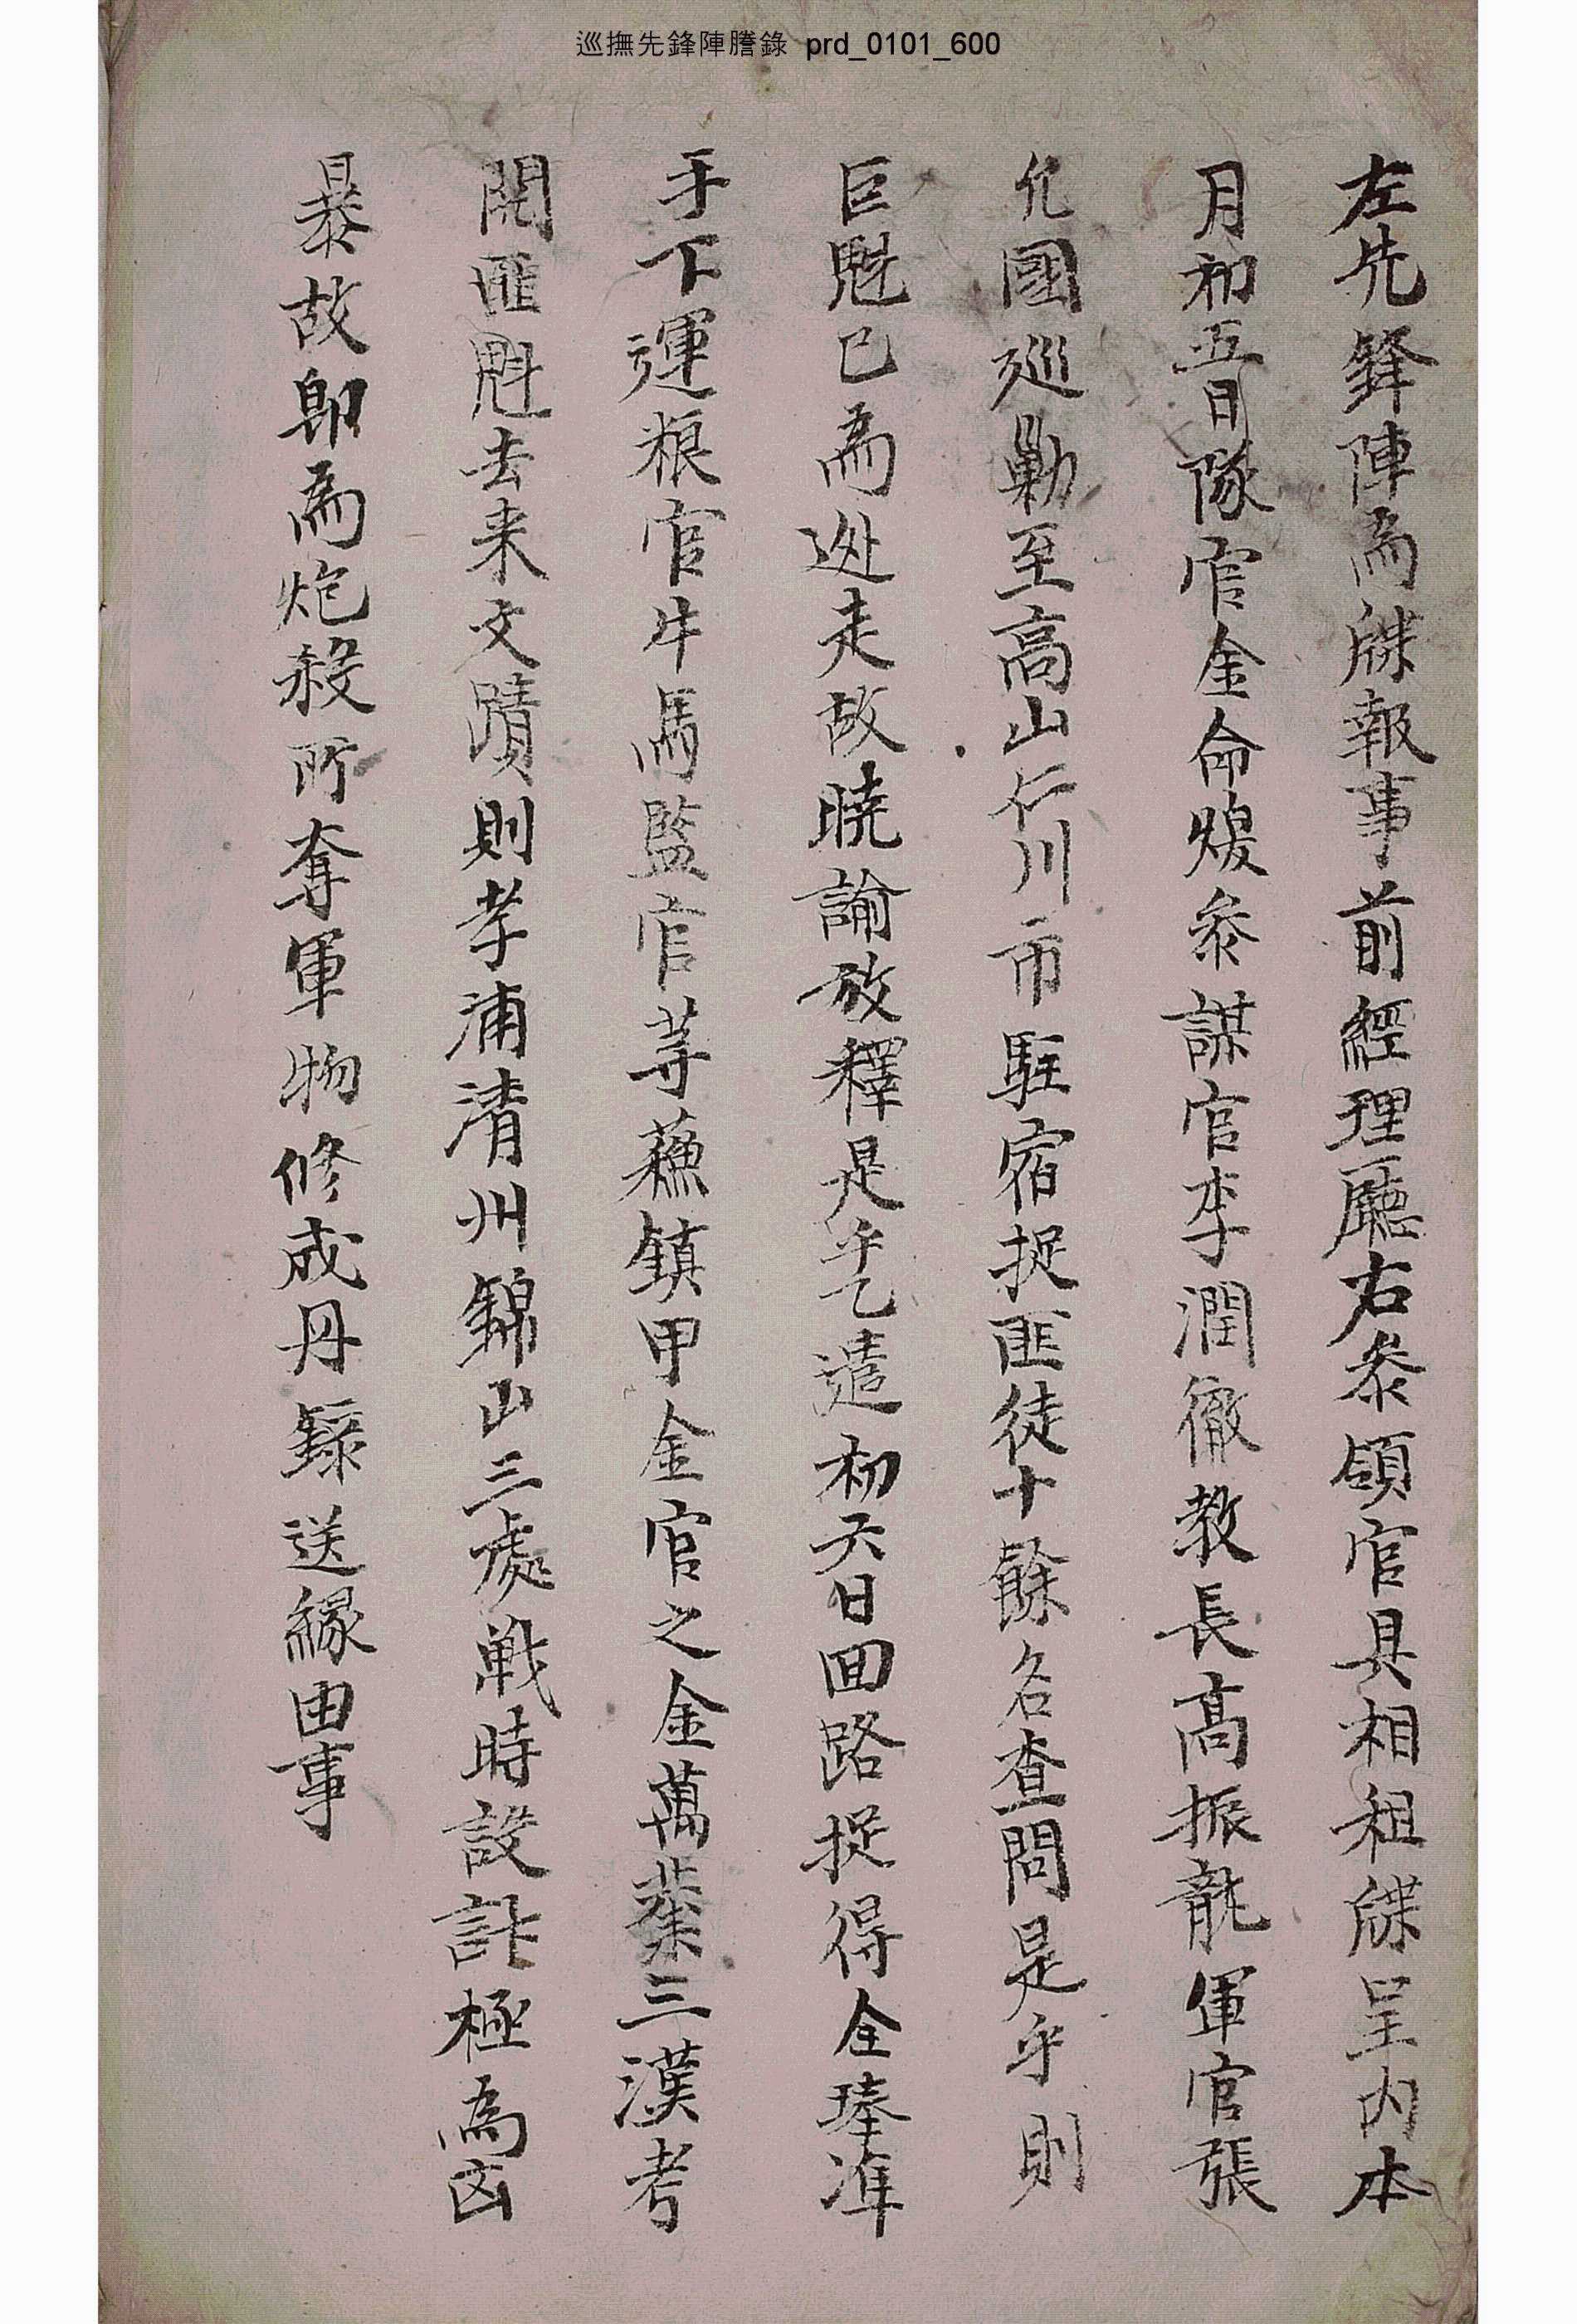 巡撫先鋒陣謄錄 prd_0101_600
左先鋒陣爲牒報事前經理廳右叅領官具相祖牒呈內本
月初五日隊官金命煖叅謀官李潤徹敎長高振龍軍官張
允國巡勦至高山仁川市駐宿捉匪徒十餘名查問是乎則
巨魁已爲逃走故曉諭放釋是乎乙遣初六日回路捉得全琫準
手下運粮官牛馬監官等蘓鎭甲金官之金萬業三漢考
閱匪魁去来文蹟則孝浦清州錦山三處戰時設計極爲凶
暴故卽爲炮殺所奪軍物修成册錄送緣由事